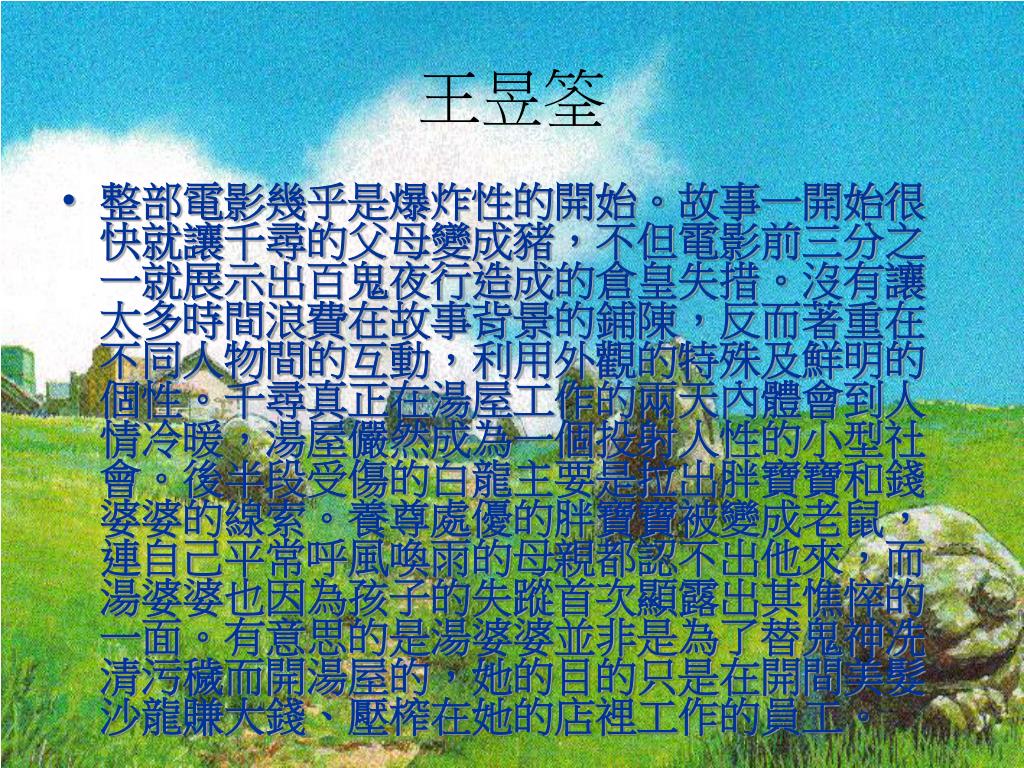 王昱筌
• 整部電影幾乎是爆炸性的開始。故事一開始很
快就讓千尋的父母變成豬，不但電影前三分之
一就展示出百鬼夜行造成的倉皇失措。沒有讓
太多時間浪費在故事背景的鋪陳，反而著重在
不同人物間的互動，利用外觀的特殊及鮮明的
個性。千尋真正在湯屋工作的兩天內體會到人
情冷暖，湯屋儼然成為一個投射人性的小型社
會。後半段受傷的白龍主要是拉出胖寶寶和錢
婆婆的線索。養尊處優的胖寶寶被變成老鼠，
連自己平常呼風喚雨的母親都認不出他來，而
湯婆婆也因為孩子的失蹤首次顯露出其憔悴的
一面。有意思的是湯婆婆並非是為了替鬼神洗
清污穢而開湯屋的，她的目的只是在開間美髮
沙龍賺大錢、壓榨在她的店裡工作的員工。